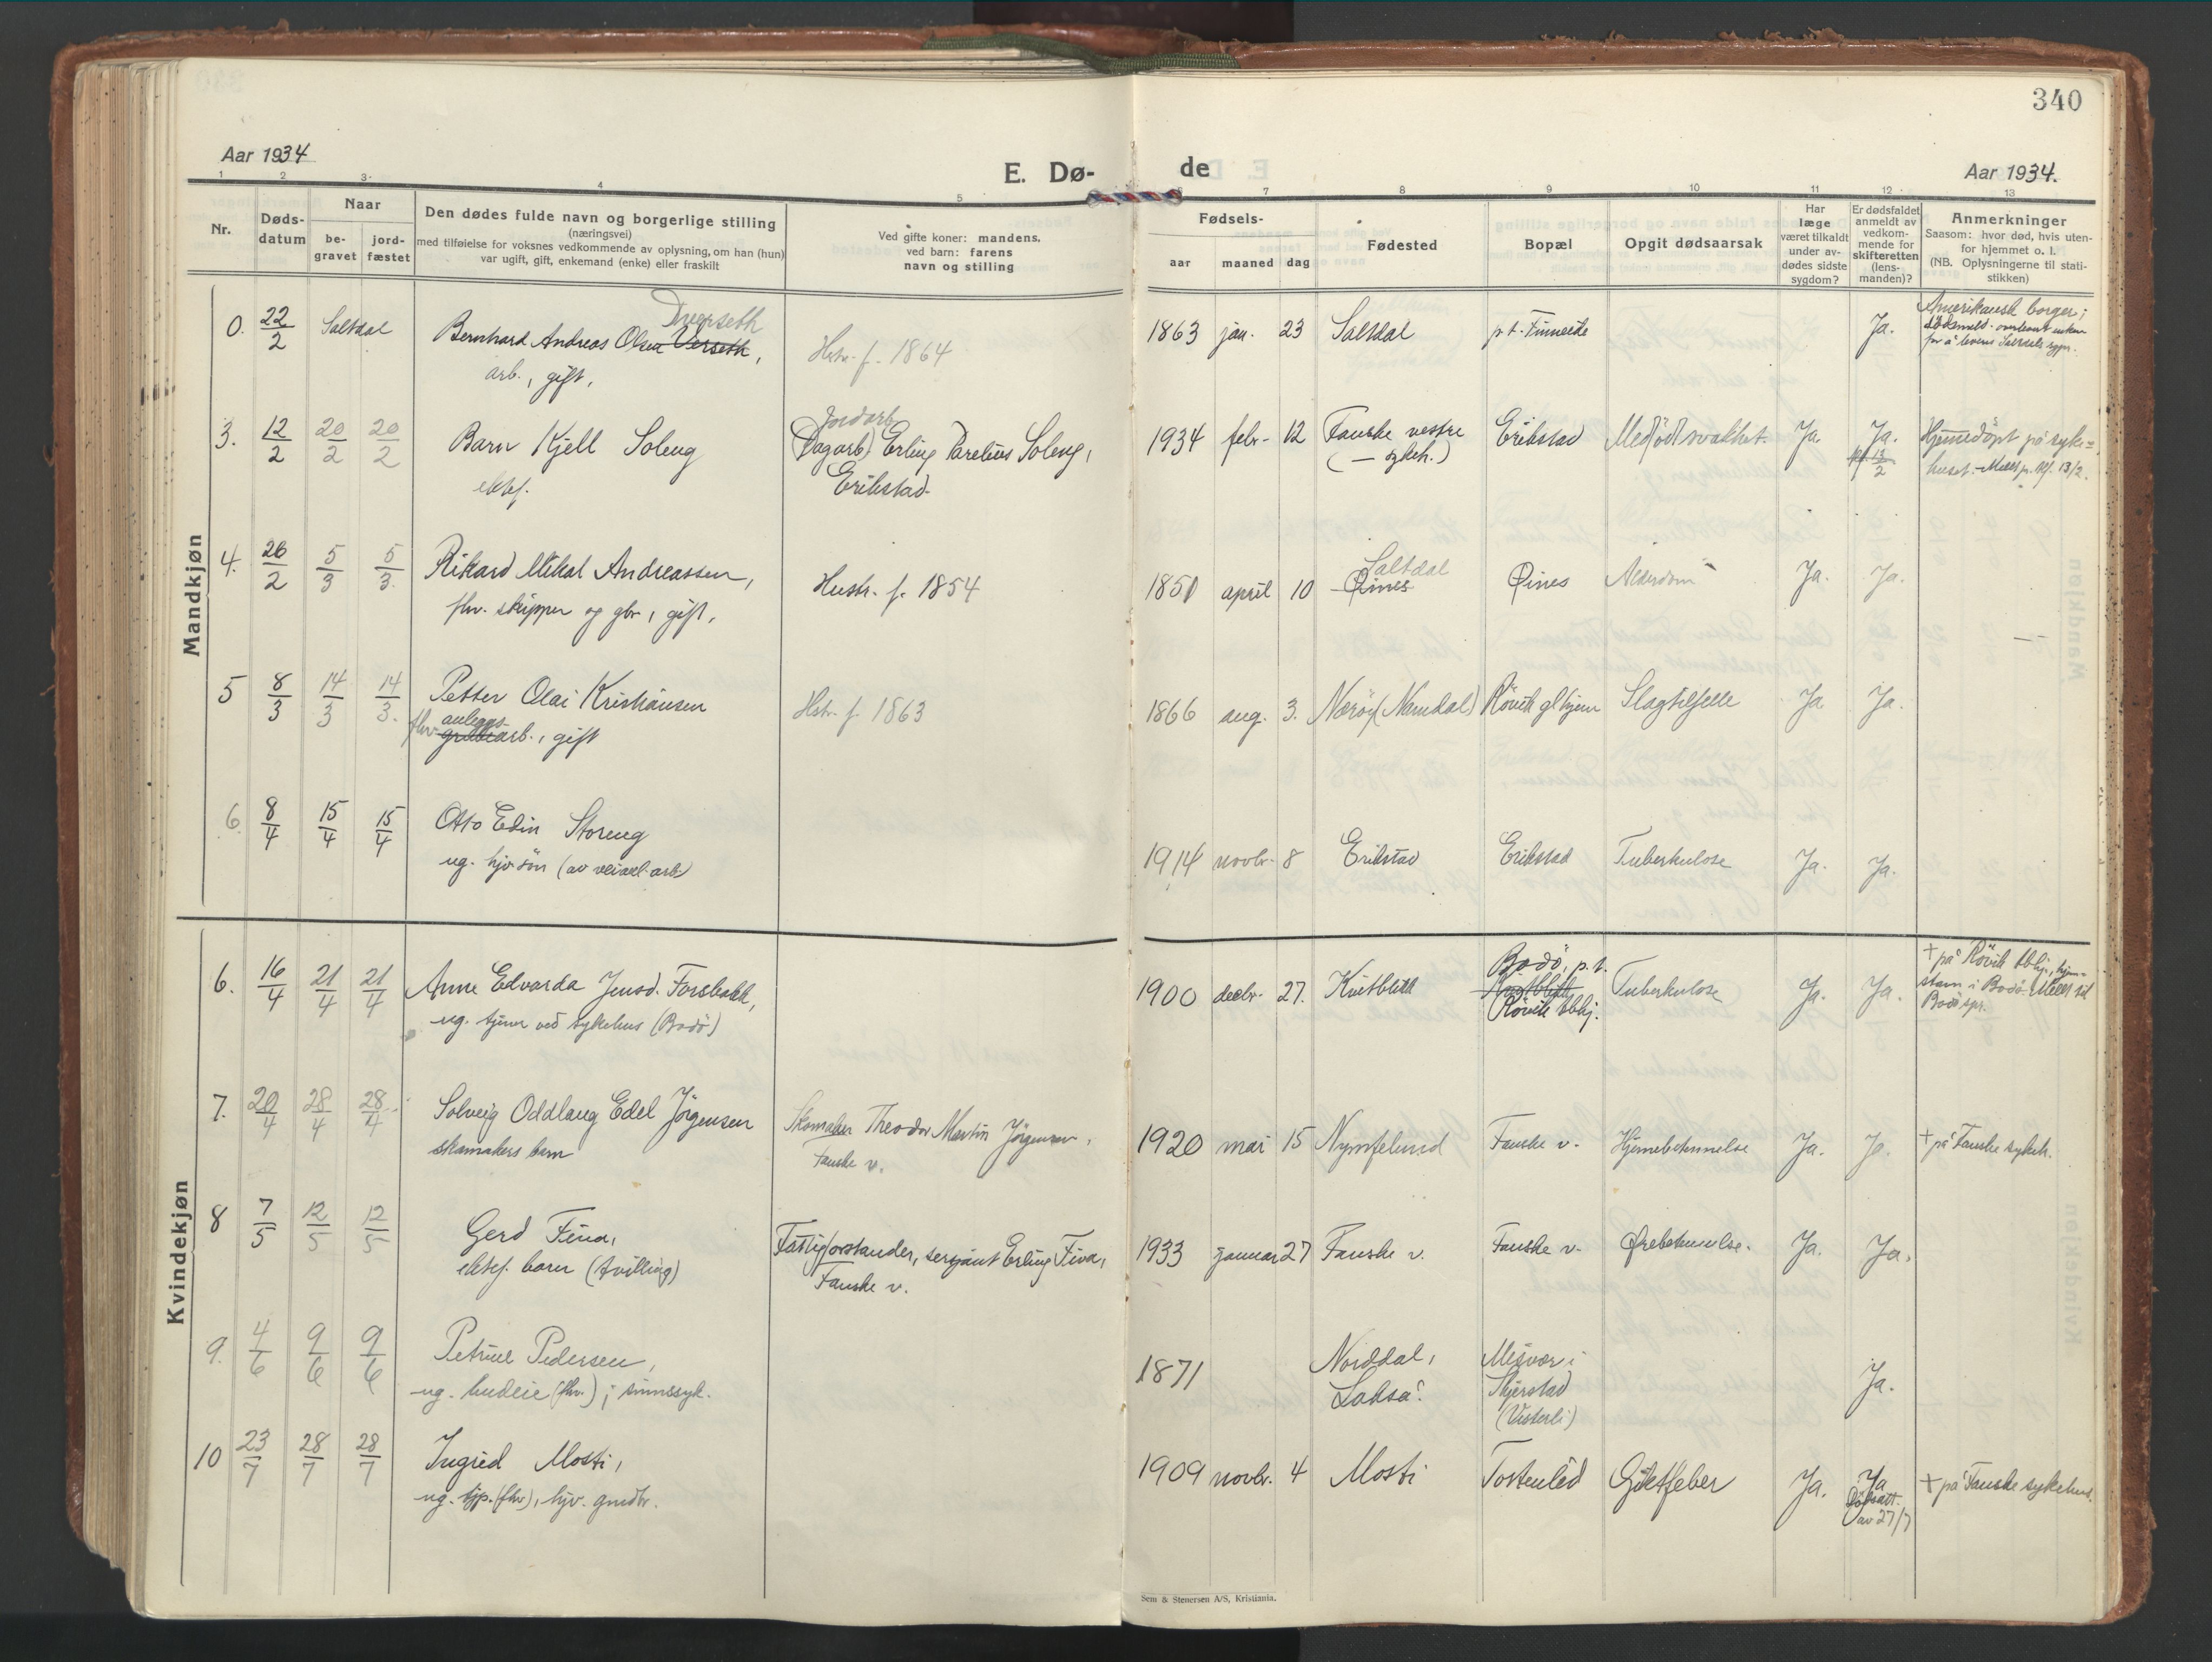 340
Aar 1934
E. Dø-
de
Aar 1934.
1 2 3 4 5 6 7 8 9 10 11 12 13
Nr.
Døds-
datum
Naar
be-
gravet
jord-
fæstet
Den dødes fulde navn og borgerlige stilling
(næringsvei)
med tilføielse for voksnes vedkommende av oplysning, om han (hun)
var ugift, gift, enkemand (enke) eller fraskilt
Ved gifte koner: mandens,
ved barn: farens
navn og stilling
Fødsels-
aar maaned dag
Fødested
Bopæl
Opgit dødsaarsak
Har
læge
været tilkaldt
under av-
dødes sidste
sygdom?
Er dødsfaldet
anmeldt av
vedkom-
mende for
skifteretten
(lens-
manden)?
Anmerkninger
Saasom: hvor død, hvis uten-
for hjemmet o. l.
(NB. Oplysningerne til stati-
stikken)
Mandkjøn
0. 22/2 Saltdal
Bernhard Andreas Olsen Verseth,
arb., gift,
Hstr. f. 1864
1863 jan. 23 Saltdal p.t. Finneide Ja.
Amerikansk borger;
3. 12/2 20/2 20/2
Barn Kjell Soleng
ektef.
Jordarb
(Dagarb) Erling Parelius Soleng,
Erikstad.
1934 febr. 12 Fauske vestre
(— sykeh.)
Erikstad Medfödt svakhet. Ja. Ja.
13/2
Hjemmedöpt på syke-
huset. - Meldt p. kf. 13/2.
4. 26/2 5/3 5/3.
Rikard Mikal Andreassen,
fhv. skipper og gbr, gift,
Hustr. f. 1854
1851 april 10 Saltdal
Øines
Øines Alderdom Ja. Ja.
5 8/3 14/3 14/3.
Petter Olai Kristiansen
anleggs-
fhv. grubearb., gift
Hstr. f. 1863
1866 aug. 3. Nærøy (Namdal) Røvik glhjem Slagtilfelle Ja Ja.
6. 8/4 15/4 15/4
Otto Edin Storeng
ug. hjv. sön
1914 novbr. 8 Erikstad Erikstad Tuberkulose Ja. Ja.
Kvindekjøn
6. 16/4 21/4 21/4
Anne Edvarda Jensd. Forsbakk,
ug. tjener ved sykehus (Bodö)
1900 decbr. 27. Kvitblikk Bodö, p.t.
Kvitblikk
Røvik tbhj.
Tuberkulose Ja. Ja.
+ på Røvik tbhj., hjem-
stavn i Bodö. Meldt til
Bodö spr.
7. 20/4 28/4 28/4
Solveig Oddlaug Edel Jörgensen
skomakers barn
Skomaker Theodor Martin Jörgensen,
Fauske v.
1920 mai 15 Nymfelund Fauske v. Hjernebetennelse Ja. Ja.
+ på Fauske sykeh.
8 7/5 12/5 12/5
Gerd Fiva,
ektef. barn (tvilling)
Fattigforstander, sersjant Erling Fiva,
Fauske v.
1933 januar 27 Fauske v. Fauske v. Ørebetennelse. Ja. Ja.
9. 4/6 9/6 9/6
Petrine Pedersen,
ug. budeie (fhv.); sinnssyk.
1871 Norddal,
Lakså.
Misvær i
Skjerstad
(Vesterli)
Ja.
10 23/7 28/7 28/7
Ingrid Mosti,
ug. tjp. (fhv.), hjv. gmdbr.
1909 novbr. 4 Mosti Tostenlid Giktfeber Ja. Ja
Dödsatt.
av 27/7
+ på Fauske sykehus.
Sem & Stenersen A/S, Kristiania.